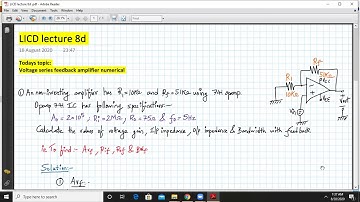 LICD lecture 8d.pdf - Adobe Reader
File Edit View Window Help
LICD lecture 8d
18 August 2020 23:47
Todays topic:
Voltage series feedback amplifier numerical
① An non-inverting amplifier has R₁ = 10KΩ and RF = 51KΩ using 741 opamp.
Opamp 741 IC has following specifications:-
A₀ = 2×10⁵, Ri = 2MΩ, R₀ = 75Ω & f₀ = 5Hz
Calculate the values of voltage gain, I/p impedance, O/p impedance & Bandwidth with feedback.
ie To find:- AVF, Rif, Rof & BWF
Solution:-
① AVF.
RF
51KΩ
R₁
10KΩ
+VCC
-VEE
Vout
1:01 AM